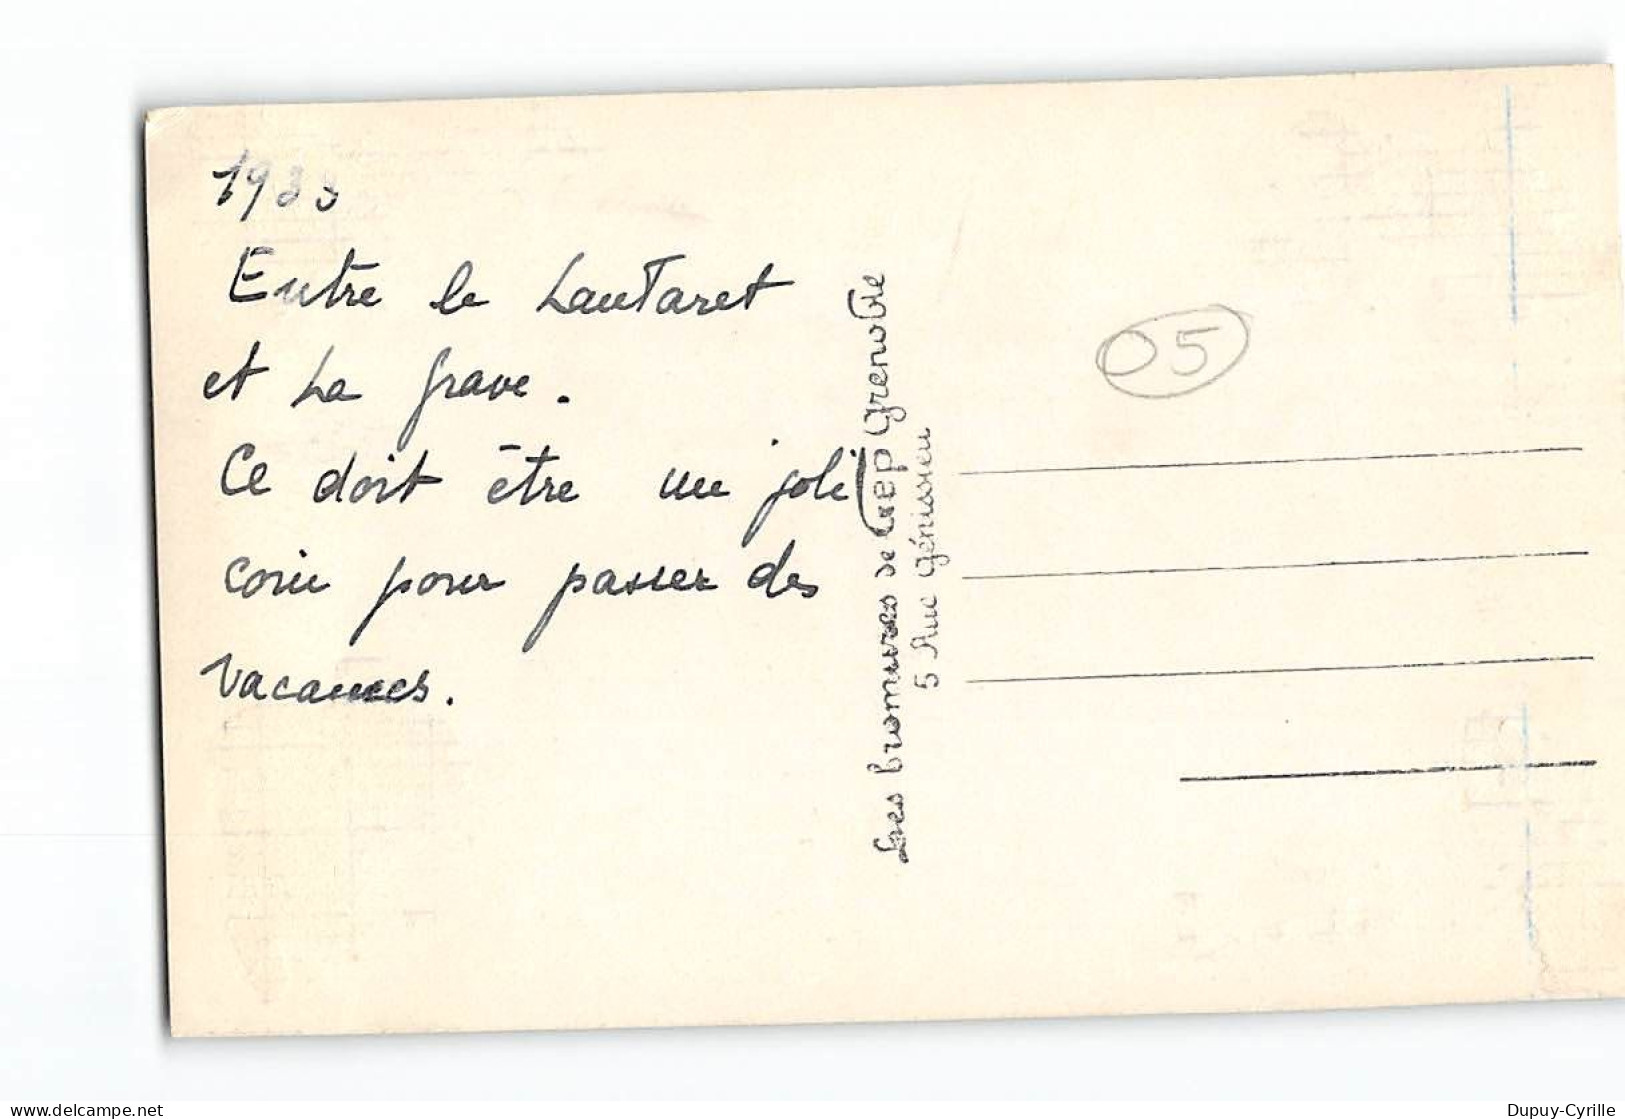 1933
Entre le Lautaret
et La Grave.
Ce doit être un joli
coin pour passer des
vacances.
Les bromures de Gep Grenoble
5 Rue Génissieu
05
Dupuy-Cyrille